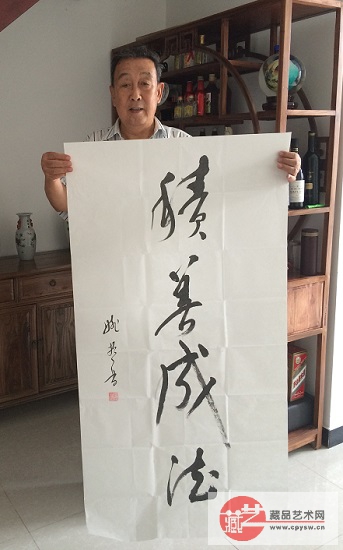 積善成德
藏艺
藏品艺术网
www.cpysw.cn